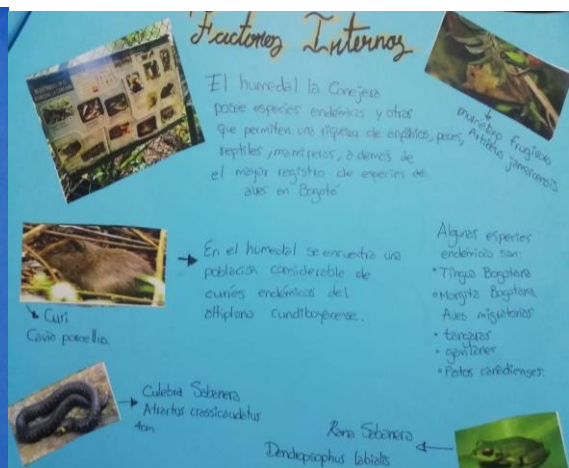 Factores Internos
El humedal la Conejera
posee especies endémicas y otras
que permiten una riqueza de anfibios, peces,
reptiles, mamíferos, además de
el mayor registro de especies de
aves en Bogotá
murciélago frugívoro
Artibeus jamaicensis
En el humedal se encuentra una
población considerable de
curíes endémicos del
altiplano cundiboyacense.
Curi
Cavia porcellus
Algunas especies
endémicas son:
• Tingua Bogotana
• Monjita Bogotana
Aves migratorias
• tángaras
• gavilanes
• Patos canadienses.
Culebra Sabanera
Atractus crassicaudatus
4cm
Rana Sabanera
Dendropsophus labialis